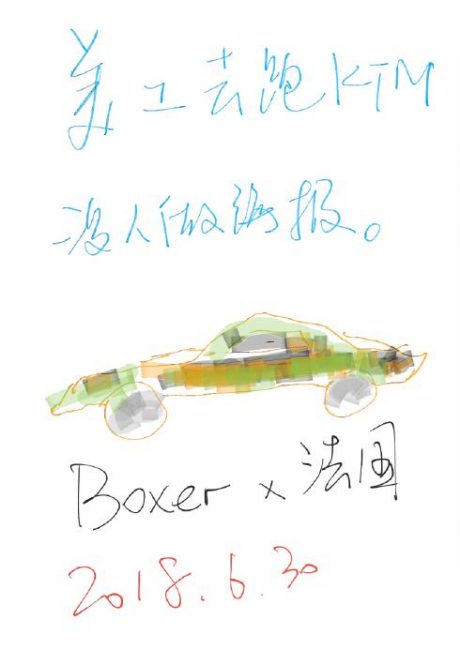 美工去跑KTM
没人做海报。
Boxer x 法国
2018.6.30